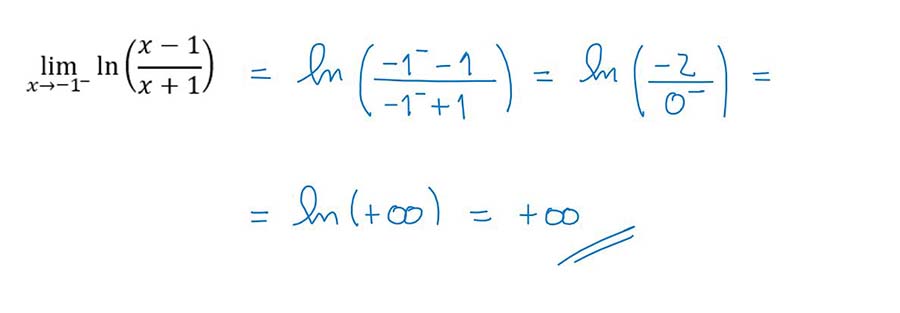 lim x→−1⁻ ln((x − 1)/(x + 1)) = ln((-1⁻ - 1)/(-1⁻ + 1)) = ln((-2)/(0⁻)) =
= ln(+∞) = +∞